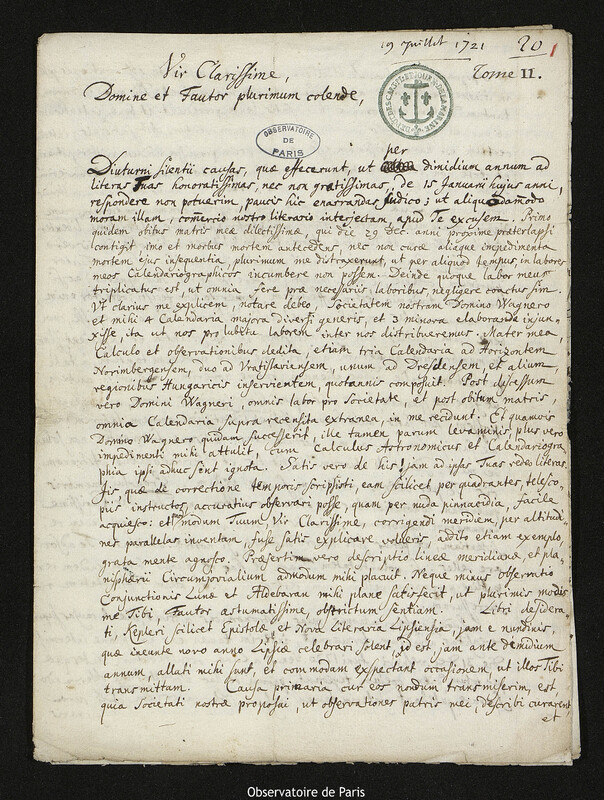 19 Juillet 1721
20
Tome II.
Vir Clarissime,
Domine et Fautor plurimum colende,
OBSERVATOIRE
DE
PARIS
per
Diuturni silentii causas, quæ effecerunt, ut dimidium annum ad
literas Tuas honoratissimas, nec non gratissimas, de 15 Januarii hujus anni,
respondere non potuerim, paucis hic enarrandas judico; ut aliquodamodo
moram illam, comercio nostro literario interjectam, apud Te excusem. Primo
quidem obitus matris meæ dilectissimæ, qui die 29 Dec. anni proxime præterlapsi
contigit, imo et morbus mortem antecedens, nec non curæ aliaque impedimenta
mortem ejus insequentia, plurimum me distraxerunt, ut per aliquod tempus, in labores
meos Calendariographicos incumbere non possem. Deinde quoque labor meus
triplicatus est, ut omnia fere præ necessariis laboribus, negligere coactus sim.
Ut clarius me explicem, notare debeo, Societatem nostram Domino Wagnero
et mihi 4 Calendaria majora diversi generis, et 3 minora elaboranda injun-
xisse, ita ut nos pro lubitu laborem inter nos distribueremus. Mater mea,
Calculo et observationibus dedita, etiam tria Calendaria ad Horizontem
Norimbergensem, duo ad Vratislaviensem, unum ad Dresdensem, et alium
regionibus Hungaricis inservientem, quotannis composuit. Post discessum
vero Domini Wagneri, omnis labor pro Societate, et post obitum matris,
omnia Calendaria supra recensita extranea, in me recidunt. Et quamvis
Domino Wagnero quidam successerit, ille tamen parum levaminis, plus vero
impedimenti mihi attulit, cum Calculus Astronomicus et Calendariogra-
phia ipsi adhuc sint ignota. Satis vero de his! jam ad ipsas Tuas redeo literas.
Iis, quæ de correctione temporis scripsisti, eam scilicet per quadrantes, telesco-
piis instructos, accuratius observari posse, quam per nuda pinnacidia, facile
acquiesco: et modum Tuum, Vir Clarissime, corrigendi meridiem, per altitudi-
nes parallelas inventam, fuse satis explicare volueris, addito etiam exemplo,
grata mente agnosco. Præsertim vero descriptio lineæ meridianæ, et pla-
nisphærii Circumjovialium admodum mihi placuit. Neque minus observatio
Conjunctionis Lunæ et Aldebaran mihi plane satisfecit, ut plurimis modis
me Tibi, Fautor æstumatissime, obstrictum sentiam. Libri desidera-
ti, Kepleri scilicet Epistolæ et Nova Literaria Lipsiensia, jam e nundinis,
quæ ineunte novo anno Lipsiæ celebrari solent, id est, jam ante dimidium
annum, allati mihi sunt, et commodam expectant occasionem, ut illos Tibi
transmittam. Causa primaria cur eos nondum transmiserim, est,
quia Societati nostræ proposui, ut observationes patris mei, describi curarent,
et
Observatoire de Paris